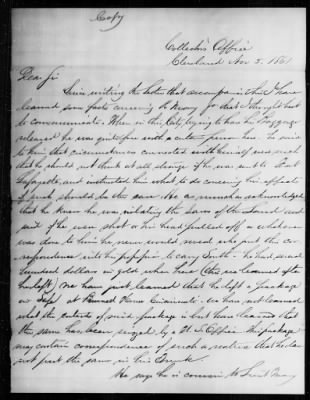 Copy
Collectors Office
Cleveland Nov 5. 1861
Dear Sir
Since writing the letter that accompanies this I have
learned some facts concerning that I thought best
to communicate. When in this City trying to have his Baggage
released he was quite free with a citizen from here. He said
to him that circumstances connected with himself was such
that he should not think at all strange if he was sent to Fort
Lafayette, and instructed him what to do concerning his effects
if such should be the case. He as much as acknowledged
that he knew he was violating the laws of the land and
said if he was shot or his head pulled off or whatever
was done to him he never would reveal who put the cor-
respondence with the papers to carry South. he had several
hundred dollars in gold when here (this we learned after
he left). We have just learned that he left a package
in Safe at Burnet House Cincinnati. we have not learned
what the contents of said package is but have learned that
the same has been seized by a U.S. Officer this package
may contain correspondence of such a nature that he dare
not put the same in his Trunk.
He says he is cousin to